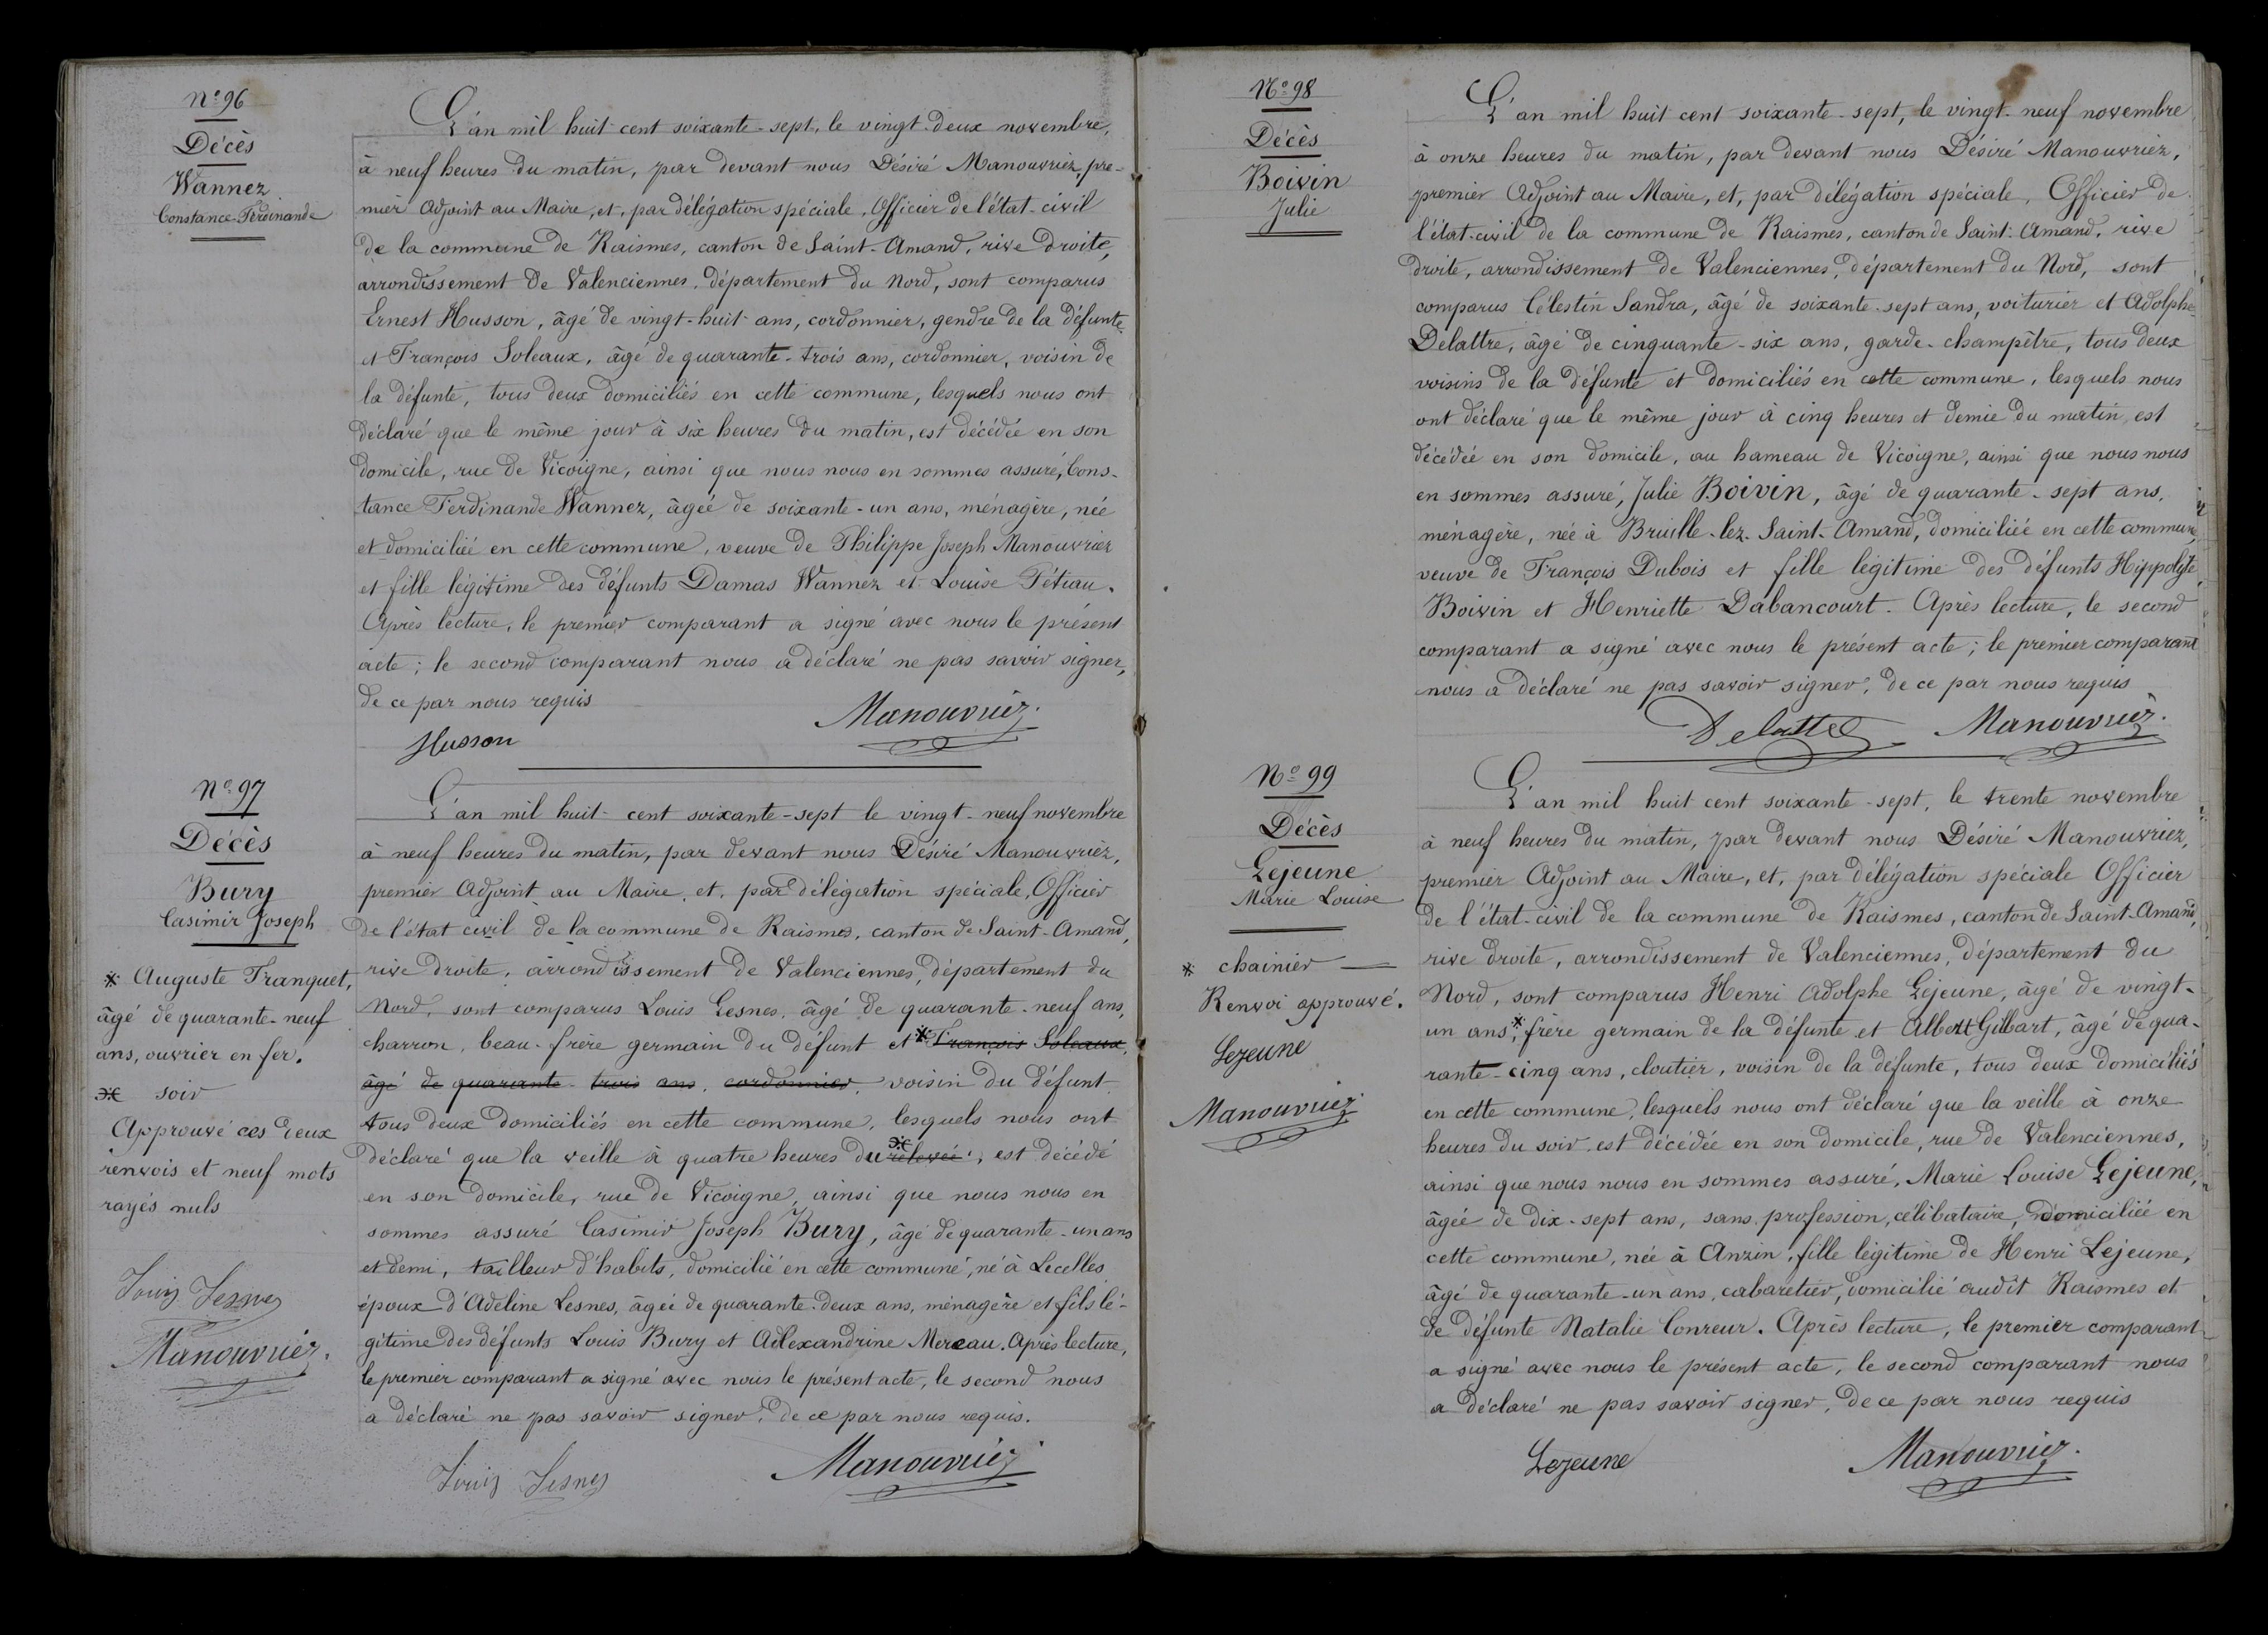 N° 96
Décès
Wannez
Constance Ferdinande
L'an mil huit cent soixante-sept, le vingt-deux novembre,
à neuf heures du matin, par devant nous Désiré Manouvriez, pre-
mier Adjoint au Maire, et, par délégation spéciale, Officier de l'état-civil
de la commune de Raismes, canton de Saint-Amand, rive droite,
arrondissement de Valenciennes, département du Nord, sont comparus
Ernest Husson, âgé de vingt-huit ans, cordonnier, gendre de la défunte
et François Soleaux, âgé de quarante-trois ans, cordonnier, voisin de
la défunte, tous deux domiciliés en cette commune, lesquels nous ont
déclaré que le même jour à six heures du matin, est décédée en son
domicile, rue de Vicoigne, ainsi que nous nous en sommes assuré, Cons-
tance Ferdinande Wannez, âgée de soixante-un ans, ménagère, née
et domiciliée en cette commune, veuve de Philippe Joseph Manouvriez
et fille légitime des défunts Damas Wannez et Louise Pétiau.
Après lecture, le premier comparant a signé avec nous le présent
acte; le second comparant nous a déclaré ne pas savoir signer,
de ce par nous requis
Husson Manouvriez
N° 97
Décès
Bury
Casimir Joseph
* Auguste Tranquet,
âgé de quarante-neuf
ans, ouvrier en fer.
soir
Approuvé ces deux
renvois et neuf mots
rayés nuls
Louis Lesnes
Manouvriez.
L'an mil huit cent soixante-sept le vingt-neuf novembre
à neuf heures du matin, par devant nous Désiré Manouvriez,
premier Adjoint au Maire, et, par délégation spéciale, Officier
de l'état civil de la commune de Raismes, canton de Saint-Amand,
rive droite, arrondissement de Valenciennes, département du
Nord, sont comparus Louis Lesnes, âgé de quarante-neuf ans,
charron, beau-frère germain du défunt et * François Soleaux,
âgé de quarante-trois ans, cordonnier, voisin du défunt
tous deux domiciliés en cette commune, lesquels nous ont
déclaré que la veille à quatre heures du relevée, est décédé
en son domicile, rue de Vicoigne, ainsi que nous nous en
sommes assuré Casimir Joseph Bury, âgé de quarante-un ans
et demi, tailleur d'habits, domicilié en cette commune, né à Lecelles
époux d'Adeline Lesnes, âgée de quarante-deux ans, ménagère et fils lé-
gitime des défunts Louis Bury et Adlexandrine Mereau. Après lecture,
le premier comparant a signé avec nous le présent acte, le second nous
a déclaré ne pas savoir signer, de ce par nous requis.
Louis Lesnes Manouvriez
N° 98
Décès
Boivin
Julie
L'an mil huit cent soixante-sept, le vingt-neuf novembre
à onze heures du matin, par devant nous Désiré Manouvriez,
premier Adjoint au Maire, et, par délégation spéciale, Officier de
l'état-civil de la commune de Raismes, canton de Saint-Amand, rive
droite, arrondissement de Valenciennes, département du Nord, sont
comparus Célestin Sandra, âgé de soixante-sept ans, voiturier et Adolphe
Delattre, âgé de cinquante-six ans, garde-champêtre, tous deux
voisins de la défunte et domiciliés en cette commune, lesquels nous
ont déclaré que le même jour à cinq heures et demie du matin, est
décédée en son domicile, au hameau de Vicoigne, ainsi que nous nous
en sommes assuré, Julie Boivin, âgé de quarante-sept ans,
ménagère, née à Bruille-lez-Saint-Amand, domiciliée en cette commune,
veuve de François Dubois et fille légitime des défunts Hippolyte
Boivin et Henriette Dabancourt. Après lecture, le second
comparant a signé avec nous le présent acte; le premier comparant
nous a déclaré ne pas savoir signer, de ce par nous requis
Delattre Manouvriez.
N° 99
Décès
Lejeune
Marie Louise
* chainier
Renvoi approuvé.
Lejeune
Manouvriez
L'an mil huit cent soixante-sept, le trente novembre
à neuf heures du matin, par devant nous Désiré Manouvriez,
premier Adjoint au Maire, et, par délégation spéciale Officier
de l'état-civil de la commune de Raismes, canton de Saint-Amand,
rive droite, arrondissement de Valenciennes, département du
Nord, sont comparus Henri Adolphe Lejeune, âgé de vingt-
un ans,* frère germain de la défunte et Albert Gilbart, âgé de qua-
rante-cinq ans, cloutier, voisin de la défunte, tous deux domiciliés
en cette commune, lesquels nous ont déclaré que la veille à onze
heures du soir, est décédée en son domicile, rue de Valenciennes,
ainsi que nous nous en sommes assuré, Marie Louise Lejeune,
âgée de dix-sept ans, sans profession, célibataire, domiciliée en
cette commune, née à Anzin, fille légitime de Henri Lejeune,
âgé de quarante-un ans, cabaretier, domicilié audit Raismes et
de défunte Natalie Conreur. Après lecture, le premier comparant
a signé avec nous le présent acte, le second comparant nous
a déclaré ne pas savoir signer, de ce par nous requis
Lejeune Manouvriez.